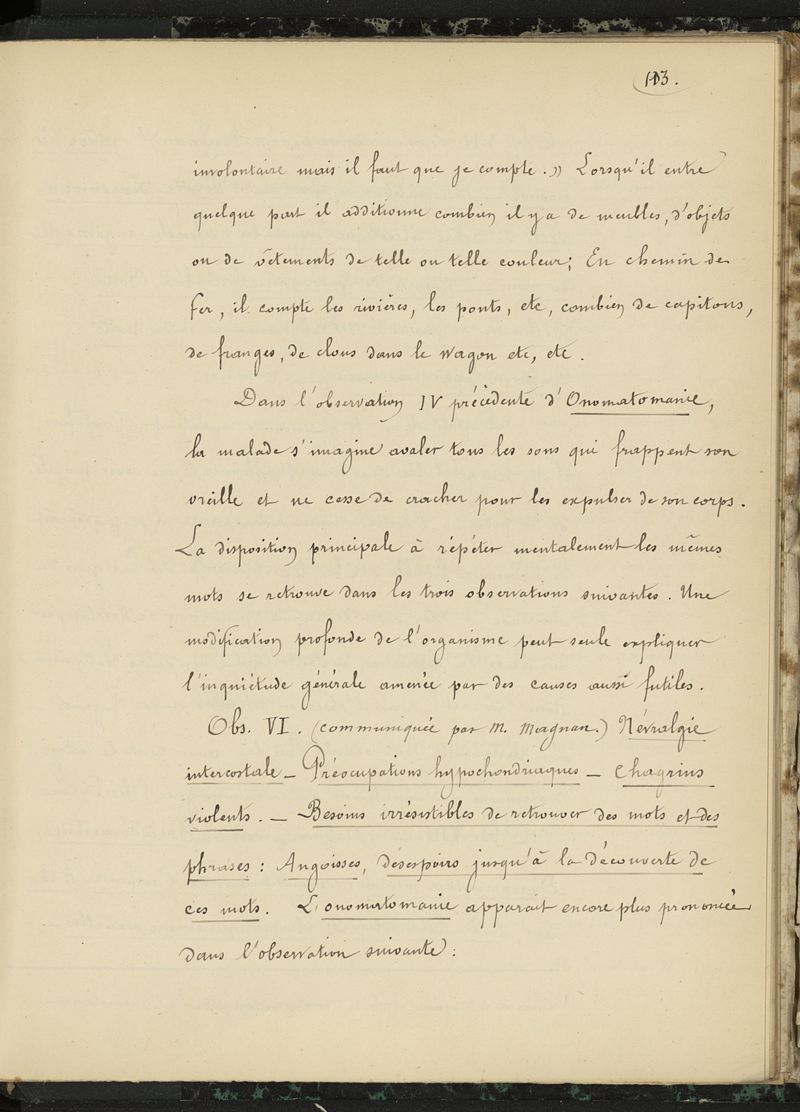 113.
involontaire mais il faut que je compte.» Lorsqu'il entre
quelque part il additionne combien il y a de meubles, d'objets
ou de vêtements de telle ou telle couleur; En chemin de
fer, il compte les rivières, les ponts, etc, combien de capitons,
de franges, de clous dans le wagon etc, etc.
Dans l'observation IV précèdente d'Onomatomanie,
la malade s'imagine avaler tous les sons qui frappent son
oreille et ne cesse de cracher pour les expulser de son corps.
La disposition principale à répéter mentalement les mêmes
mots se retrouve dans les trois observations suivantes. Une
modification profonde de l'organisme peut seule expliquer
l'inquiétude générale amenée par des causes aussi futiles.
Obs. VI. (communiquée par M. Magnan.) Névralgie
intercostale - Préoccupations hypochondriaques - Chagrins
violents. - Besoins irrésistibles de retrouver des mots et des
phrases : Angoisses, désespoirs jusqu'à la découverte de
ces mots. L'onomatomanie apparait encore plus prononcée
dans l'observation suivante :